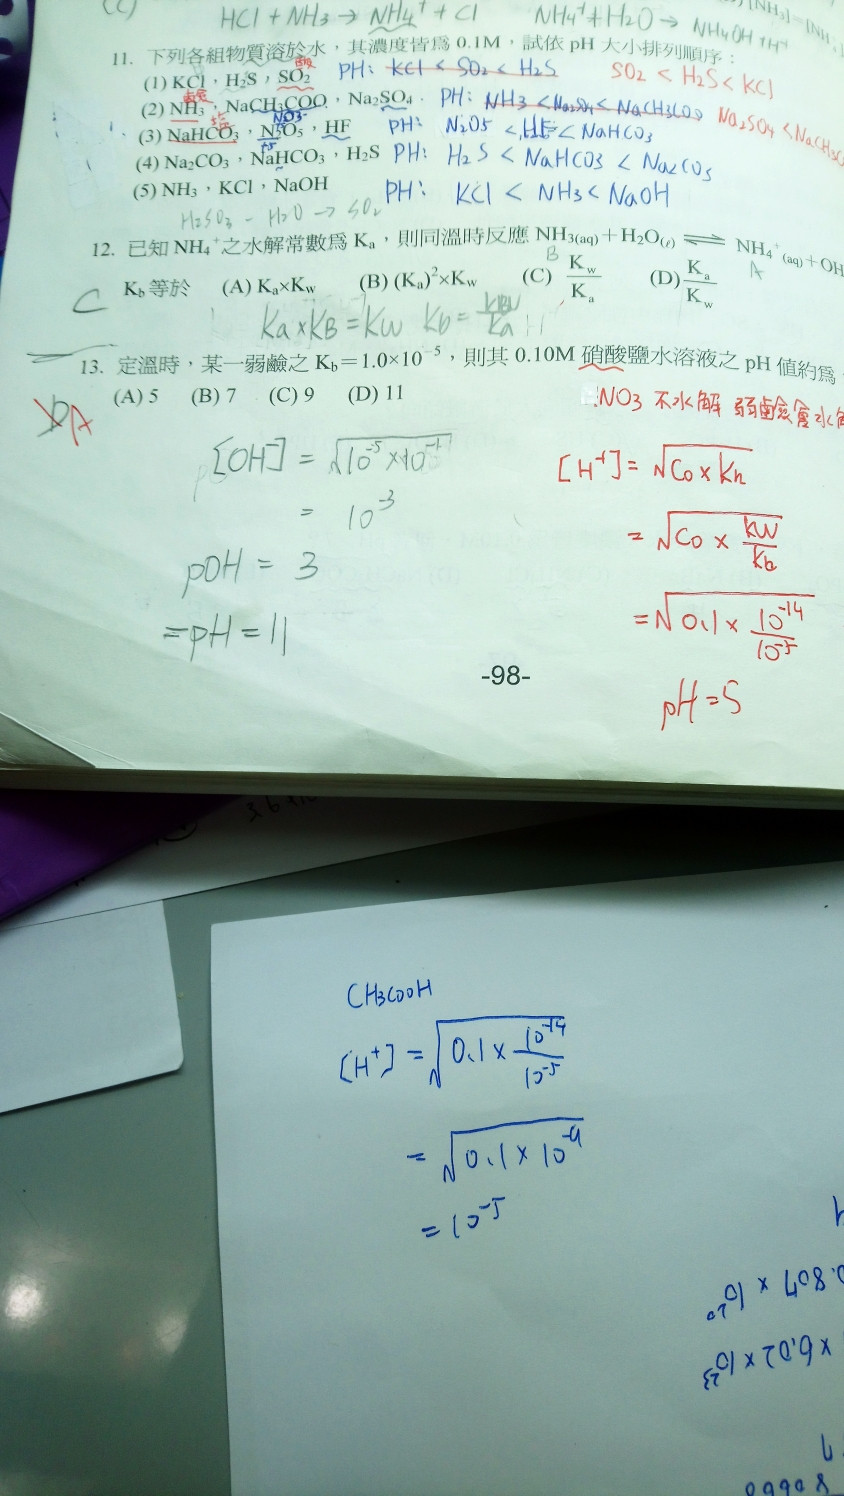 HCl + NH3 → NH4+ + Cl NH4+ + H2O → NH4OH + H+
11. 下列各組物質溶於水，其濃度皆為 0.1M，試依 pH 大小排列順序：
(1) KCl，H2S，SO2 PH: KCl < SO2 < H2S SO2 < H2S < KCl
(2) NH3，NaCH3COO，Na2SO4 PH: NH3 < Na2SO4 < NaCH3COO Na2SO4 < NaCH3C
(3) NaHCO3，N2O5，HF PH: N2O5 < HF < NaHCO3
(4) Na2CO3，NaHCO3，H2S PH: H2S < NaHCO3 < Na2CO3
(5) NH3，KCl，NaOH PH: KCl < NH3 < NaOH
H2SO3 - H2O → SO2
12. 已知 NH4+ 之水解常數為 Ka，則同溫時反應 NH3(aq) + H2O(ℓ) ⇌ NH4+(aq) + OH
C Kb 等於 (A) Ka×Kw (B) (Ka)²×Kw (C) Kw/Ka (D) Ka/Kw
B A
Ka×KB = KW Kb = KW/Ka
13. 定溫時，某一弱鹼之 Kb＝1.0×10⁻⁵，則其 0.10M 硝酸鹽水溶液之 pH 值約為
(A) 5 (B) 7 (C) 9 (D) 11
D A
NO3 不水解 弱鹼會水解
[OH-] = √10⁻⁵×10⁻¹
= 10⁻³
pOH = 3
= pH = 11
[H+] = √Co × Kh
= √Co × KW/Kb
= √0.1 × 10⁻¹⁴/10⁻⁵
pH = 5
-98-
CH3COOH
[H+] = √0.1 × 10⁻¹⁴/10⁻⁵
= √0.1 × 10⁻⁹
= 10⁻⁵
.807 × 10²⁰
× 6.02 × 10²³